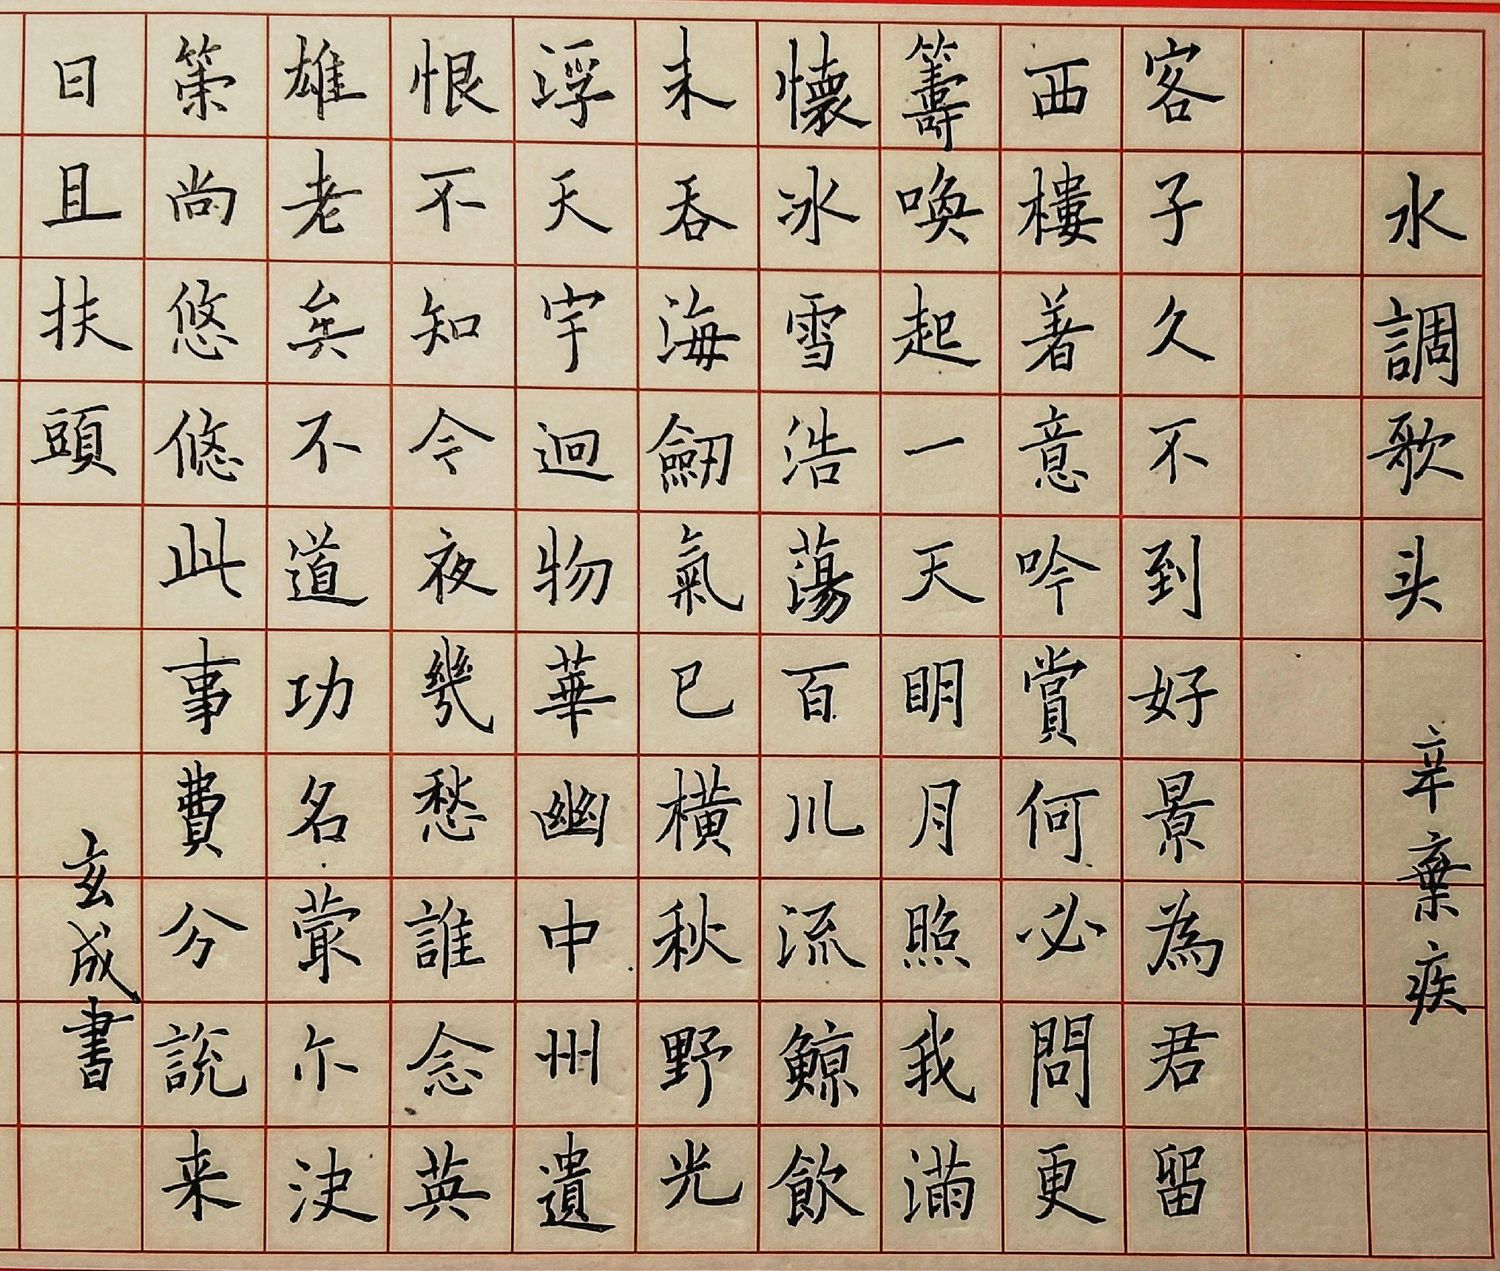 水調歌头 辛棄疾
客子久不到好景為君留
西樓著意吟賞何必問更
籌喚起一天明月照我滿
懷冰雪浩蕩百川流鯨飲
未吞海劒氣已橫秋野光
浮天宇迥物華幽中州遺
恨不知今夜幾愁誰念英
雄老矣不道功名蕞尔決
策尚悠悠此事費分說来
日且扶頭 玄成書